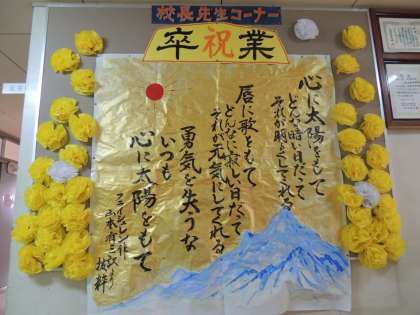 校長先生コーナー
卒祝業
心に太陽をもて
どんな暗い日だって
それが明るくしてくれる
唇に歌をもて
どんなに寂しい日だって
それが元気にしてくれる
勇気を失うな
いつも
心に太陽をもて
山本有三訳より
抜粋